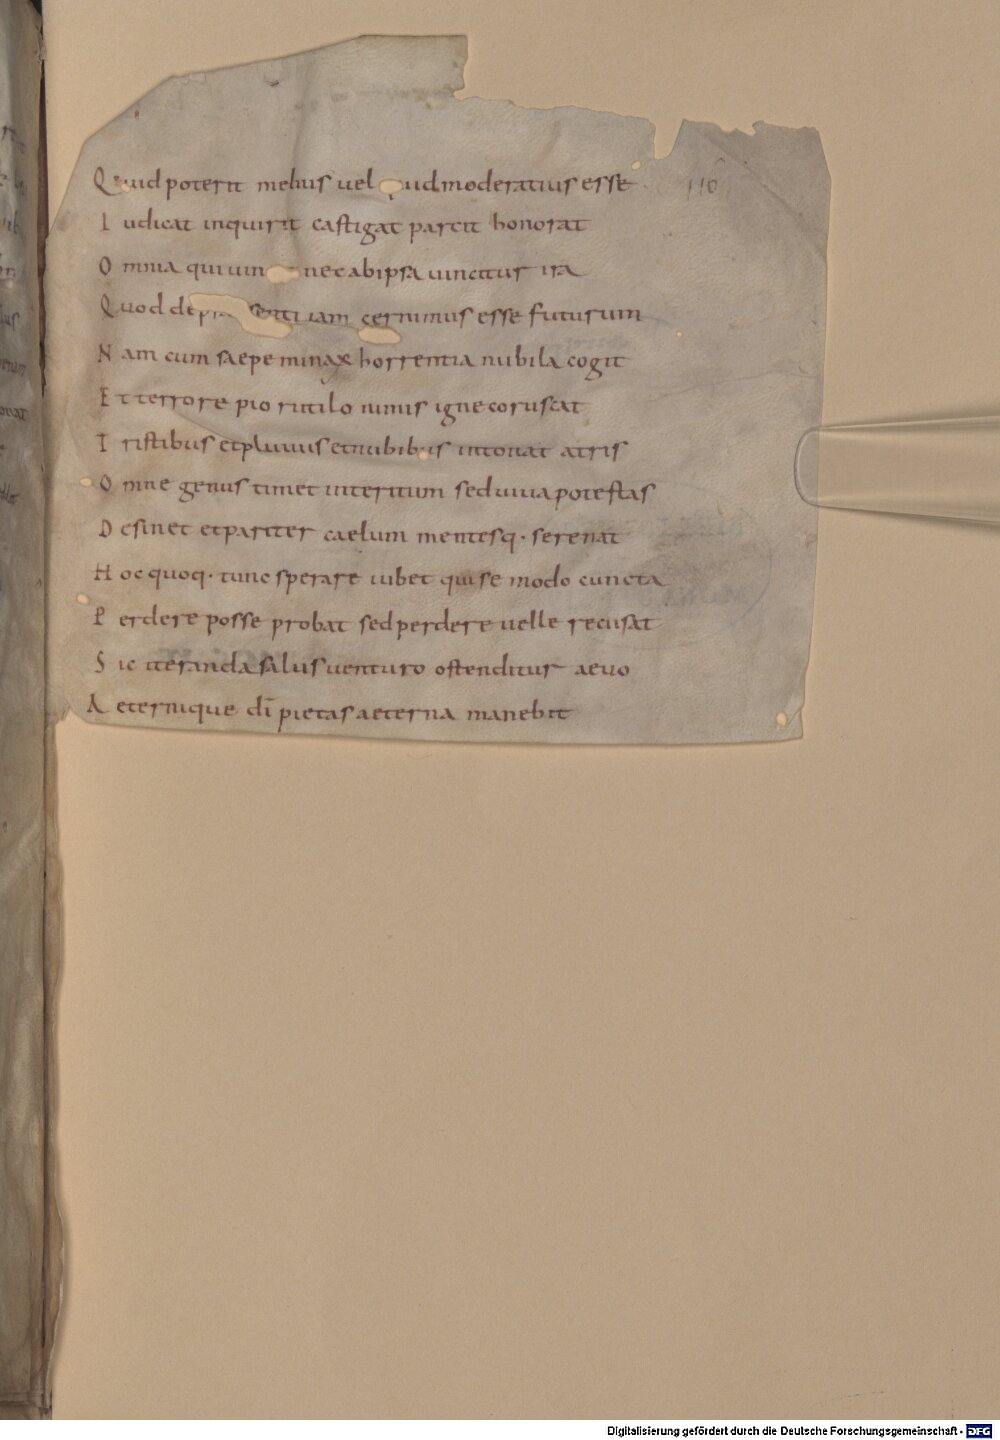 Quid poterit melius uel quid moderatius esse 110
Iudicat inquirit castigat parcit honorat
Omnia qui uin nec ab ipsa uincitur ira
Quod de praesenti iam cernimus esse futurum
Nam cum saepe minax horrentia nubila cogit
Et terrore pio rutilo nimis igne coruscat
Tristibus et pluuiis et nubibus intonat atris
Omne genus timet interitum sed uiua potestas
Desinet et pariter caelum mentesq· serenat
Hoc quoq· tunc sperare iubet qui se modo cuncta
Perdere posse probat sed perdere uelle recusat
Sic iteranda salus uenturo ostenditur aeuo
Aeternique di̅ pietas aeterna manebit
Digitalisierung gefördert durch die Deutsche Forschungsgemeinschaft - DFG